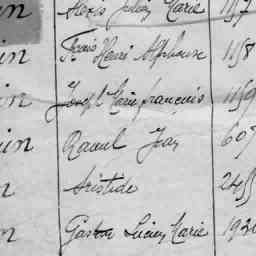 in Alexis Julien Marie 1157
in Frois Henri Alphonse 1158
in Joseph Marie françois 1159
in Raoul Jean 607
n Aristide
n Gaston Lucien Marie 192